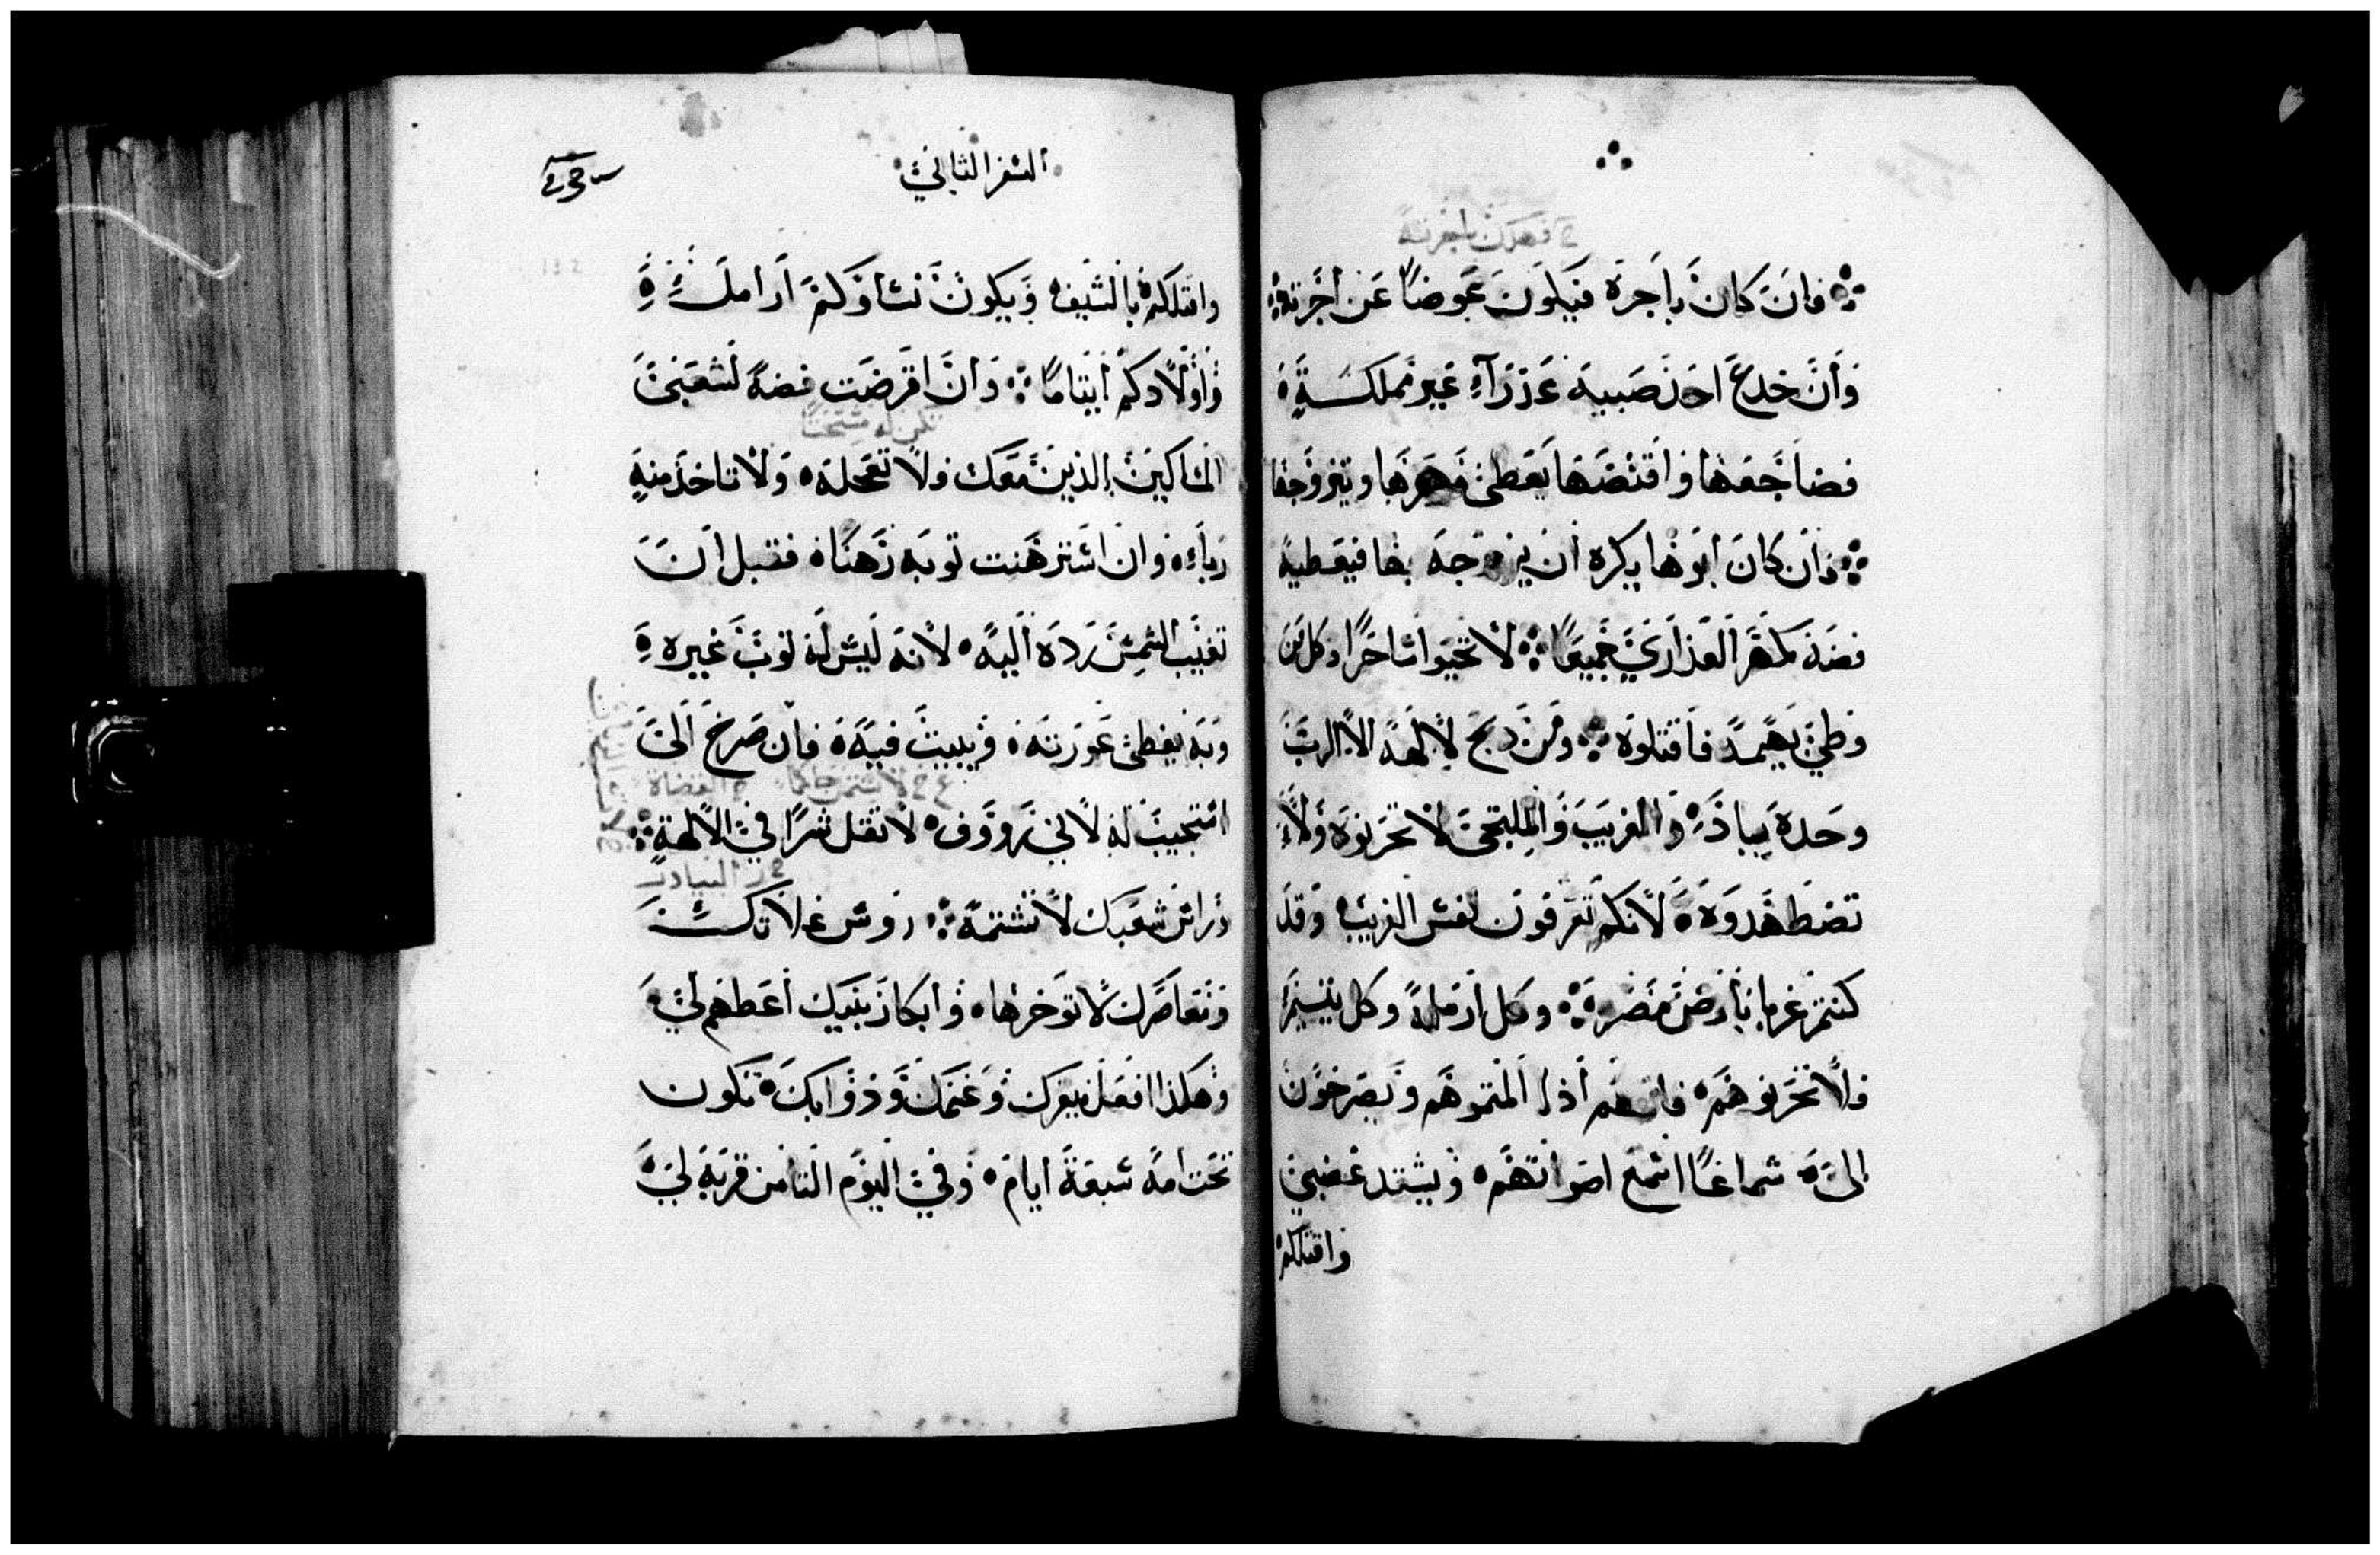 فان كان باجرة فيكون عوضا عن اجرته
وان خدع احد صبيه عذرآء غير مملكة
فضاجعها وافتضها يعطى مهرها ويتزوجها
وان كان ابوها يكره ان يزوجه بها فيعطيه
فضه كمهر العذاري جميعا لا تحيوا ساحرا وكل من
وطي بهيمة فاقتلوه ومن دبح لالهة الا الرب
وحده يباد والغريب والملتجى لا تحزنوه ولا
تضطهدوه لانكم تعرفون نفس الغريب وقد
كنتم غربا بارض مصر وكل ارملة وكل يتيم
فلا تحزنوهم فانهم اذا المتموهم ويصرخون
الى سماعا اسمع اصواتهم ويشتد غضبي
واقتلكم
السفر الثاني
واقتلكم بالسيف ويكون نساوكم ارامل
واولادكم ايتاما وان اقرضت فضه لشعبى
المساكين الذين معك فلا تعجله ولا تاخذ منه
رباء وان استرهنت توبه رهنا فقبل ان
تغيب الشمس رده اليه لانه ليس له توب غيره
وبه يغطى عورته ويبيت فيه فان صرخ الى
استجيب له لاني رووف لا تقل شرا في الالهة
وراس شعبك لا تشتمه روس غلاتك
ومعاصرك لا توخرها وابكار بنيك اعطهم لي
وهكذا افعل ببقرك وغنمك ودوابك تكون
تحت امه سبعة ايام وفي اليوم الثامن قربه لي